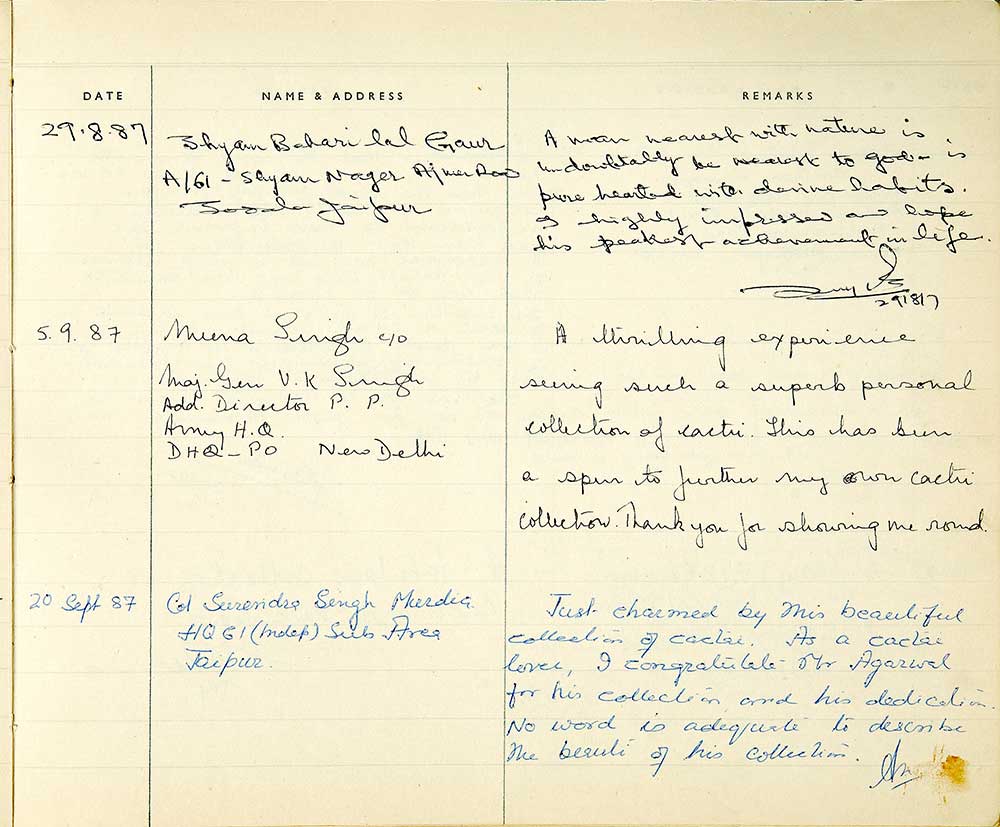 DATE NAME & ADDRESS REMARKS
29.8.87
Shyam Behari lal Gaur
A/61 - Shyam Nager Ajmer Road
Sodala Jaipur
A man nearest with nature is
undoubtably be nearest to god - is
pure hearted with devine habits.
I highly impressed and hope
his peakest achievement in life.
29/8/7
5.9.87
Meena Singh c/o
Maj. Gen V.K Singh
Add. Director P. P.
Army H.Q.
DHQ - PO New Delhi
A thrilling experience
seeing such a superb personal
collection of cacti. This has been
a spur to further my own cacti
collection. Thank you for showing me round.
20 Sept 87
Col Surendra Singh Murdia
HQ 61 (Indep) Sub Area
Jaipur.
Just charmed by this beautiful
collection of cactai. As a cactai
lover, I congratulate Mr Agarwal
for his collection and his dedication.
No word is adequate to describe
the beauti of his collection.